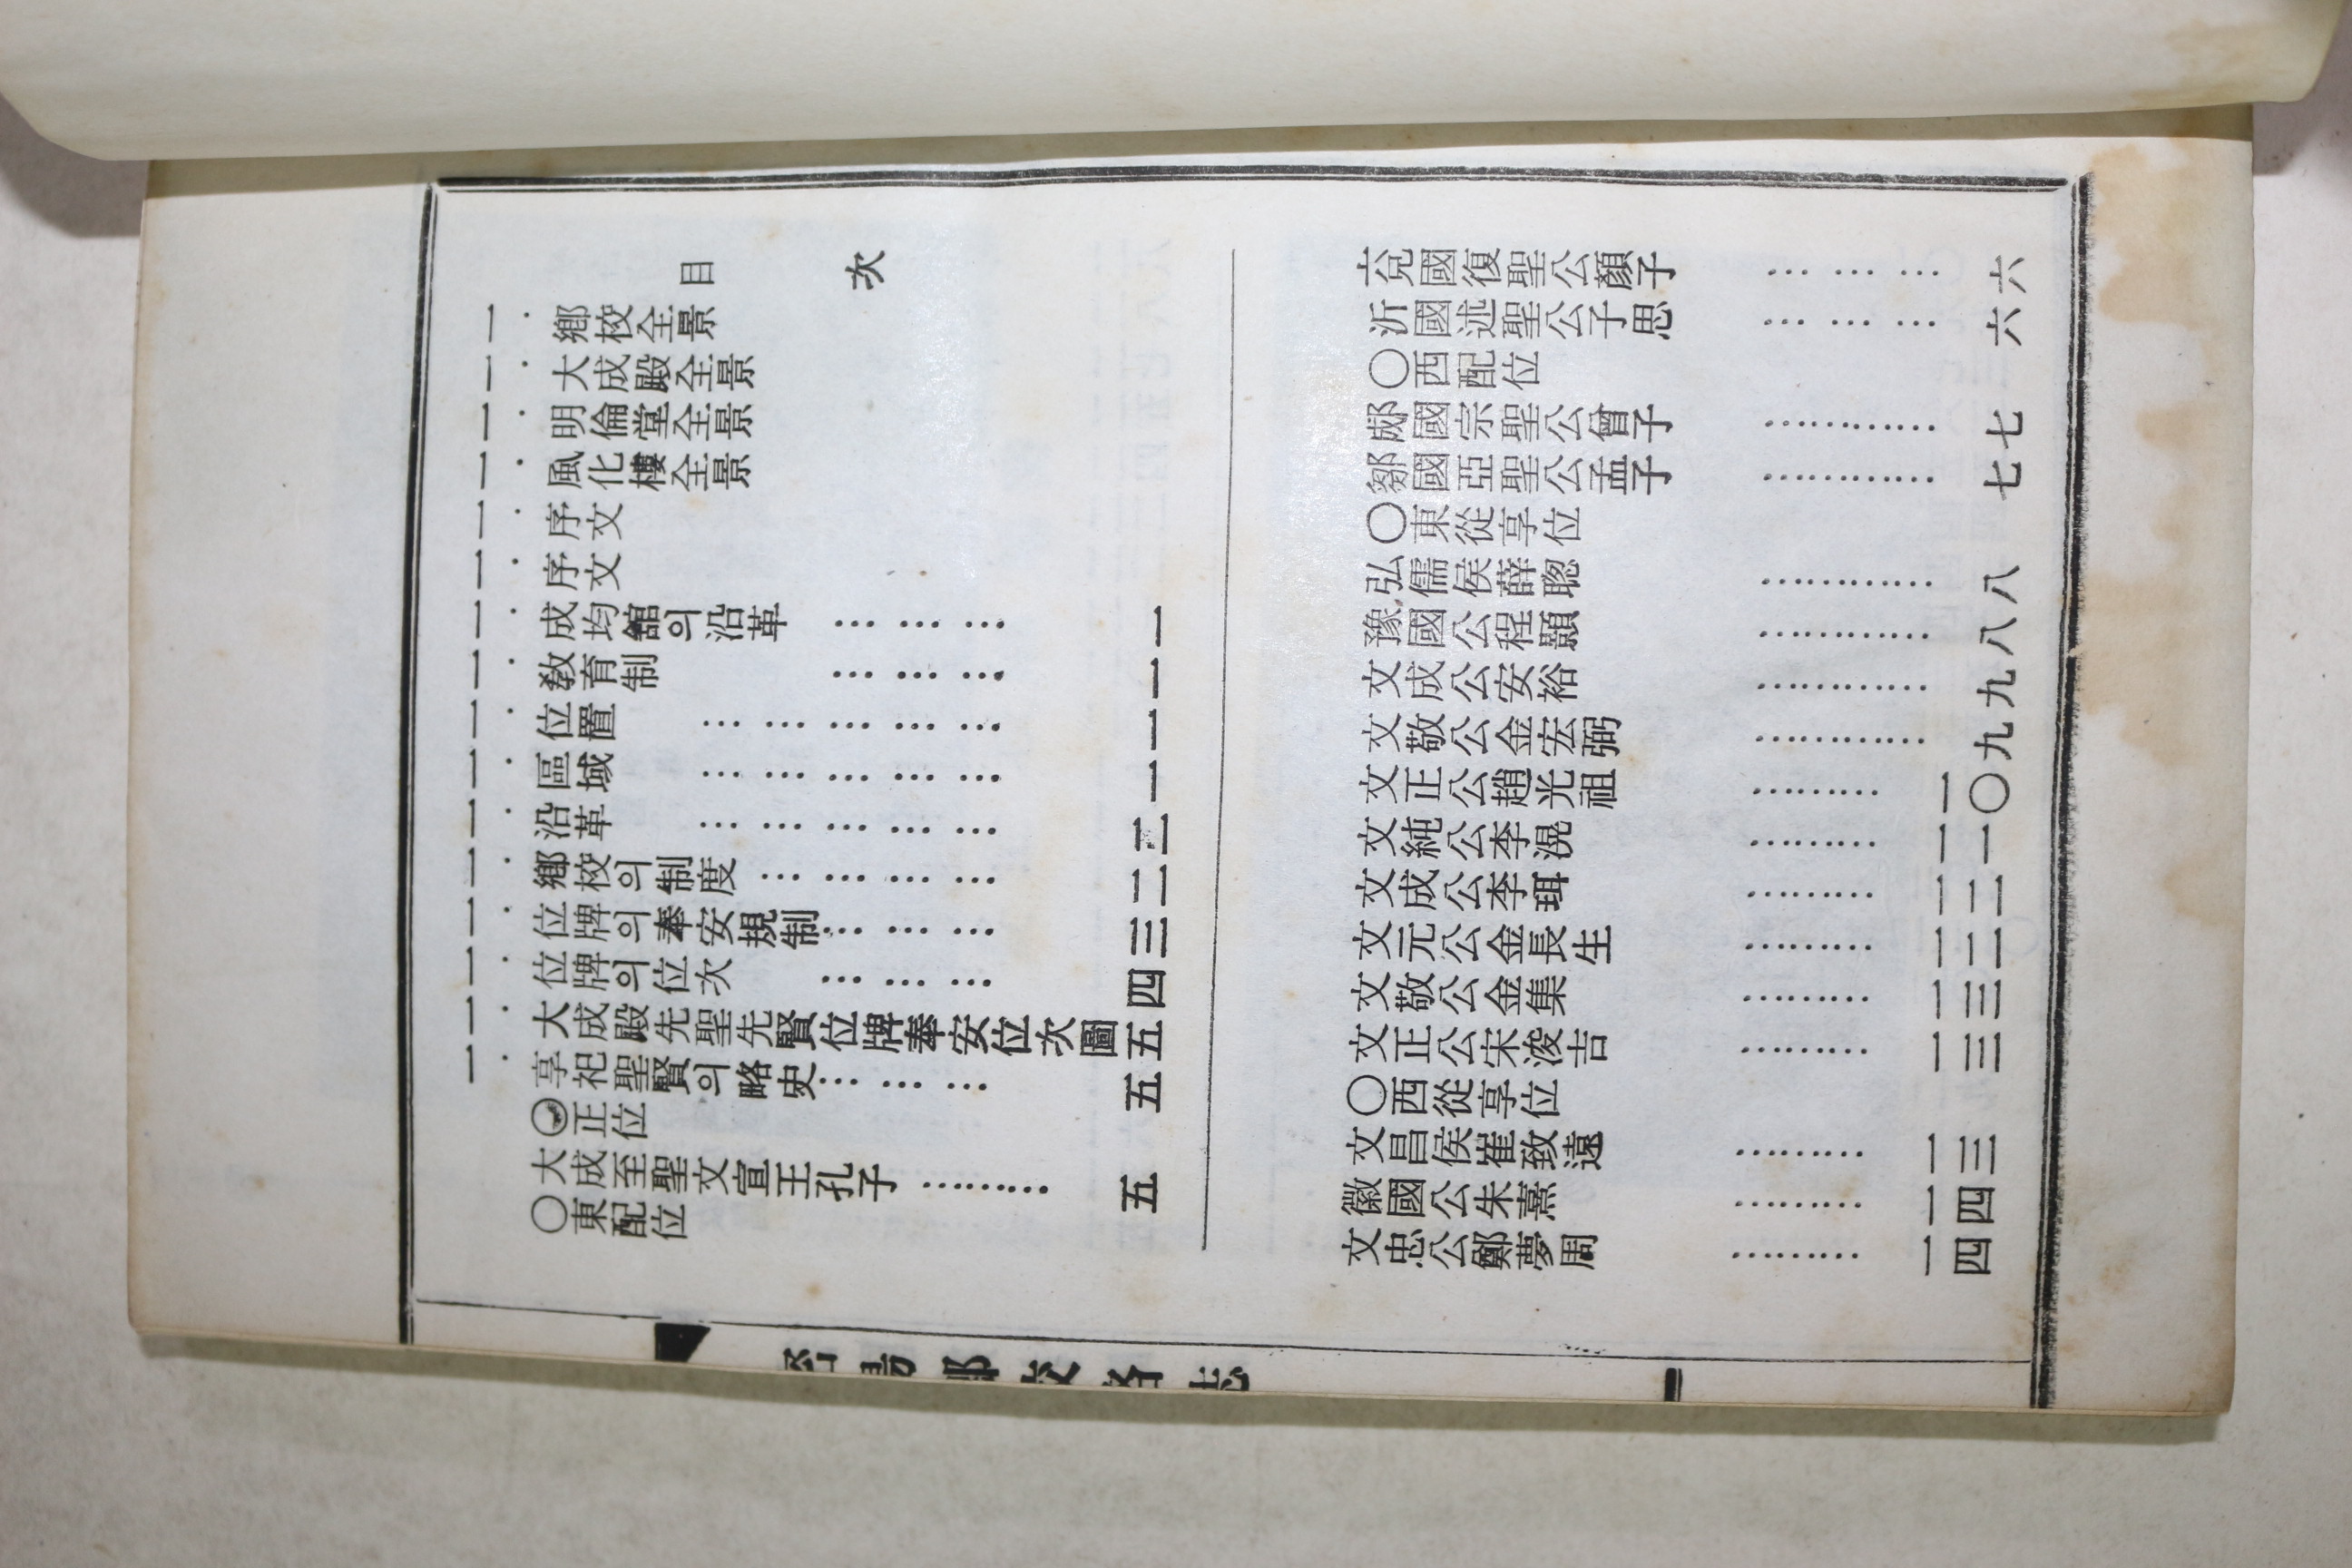 目次
一. 鄕校全景
一. 大成殿全景
一. 明倫堂全景
一. 風化樓全景
一. 序文
一. 序文
一. 成均舘의沿革 ……… 一
一. 敎育制 ……… 一
一. 位置 …………… 一
一. 區域 …………… 一
一. 沿革 …………… 二
一. 鄕校의制度 ………… 二
一. 位牌의奉安規制 ……… 三
一. 位牌의位次 ……… 四
一. 大成殿先聖先賢位牌奉安位次圖 五
一. 享祀聖賢의略史 ……… 五
◯正位
大成至聖文宣王孔子 ……… 五
○東配位
兗國復聖公顏子 ……… 六
沂國述聖公子思 ……… 六
○西配位
郕國宗聖公曾子 ………… 七
鄒國亞聖公孟子 ………… 七
○東從享位
弘儒侯薛聰 ………… 八
豫國公程顥 ………… 八
文成公安裕 ………… 九
文敬公金宏弼 ………… 九
文正公趙光祖 ……… 一〇
文純公李滉 ……… 一一
文成公李珥 ……… 一二
文元公金長生 ……… 一二
文敬公金集 ……… 一三
文正公宋浚吉 ……… 一三
○西從享位
文昌侯崔致遠 ……… 一三
徽國公朱熹 ……… 一四
文忠公鄭夢周 ……… 一四